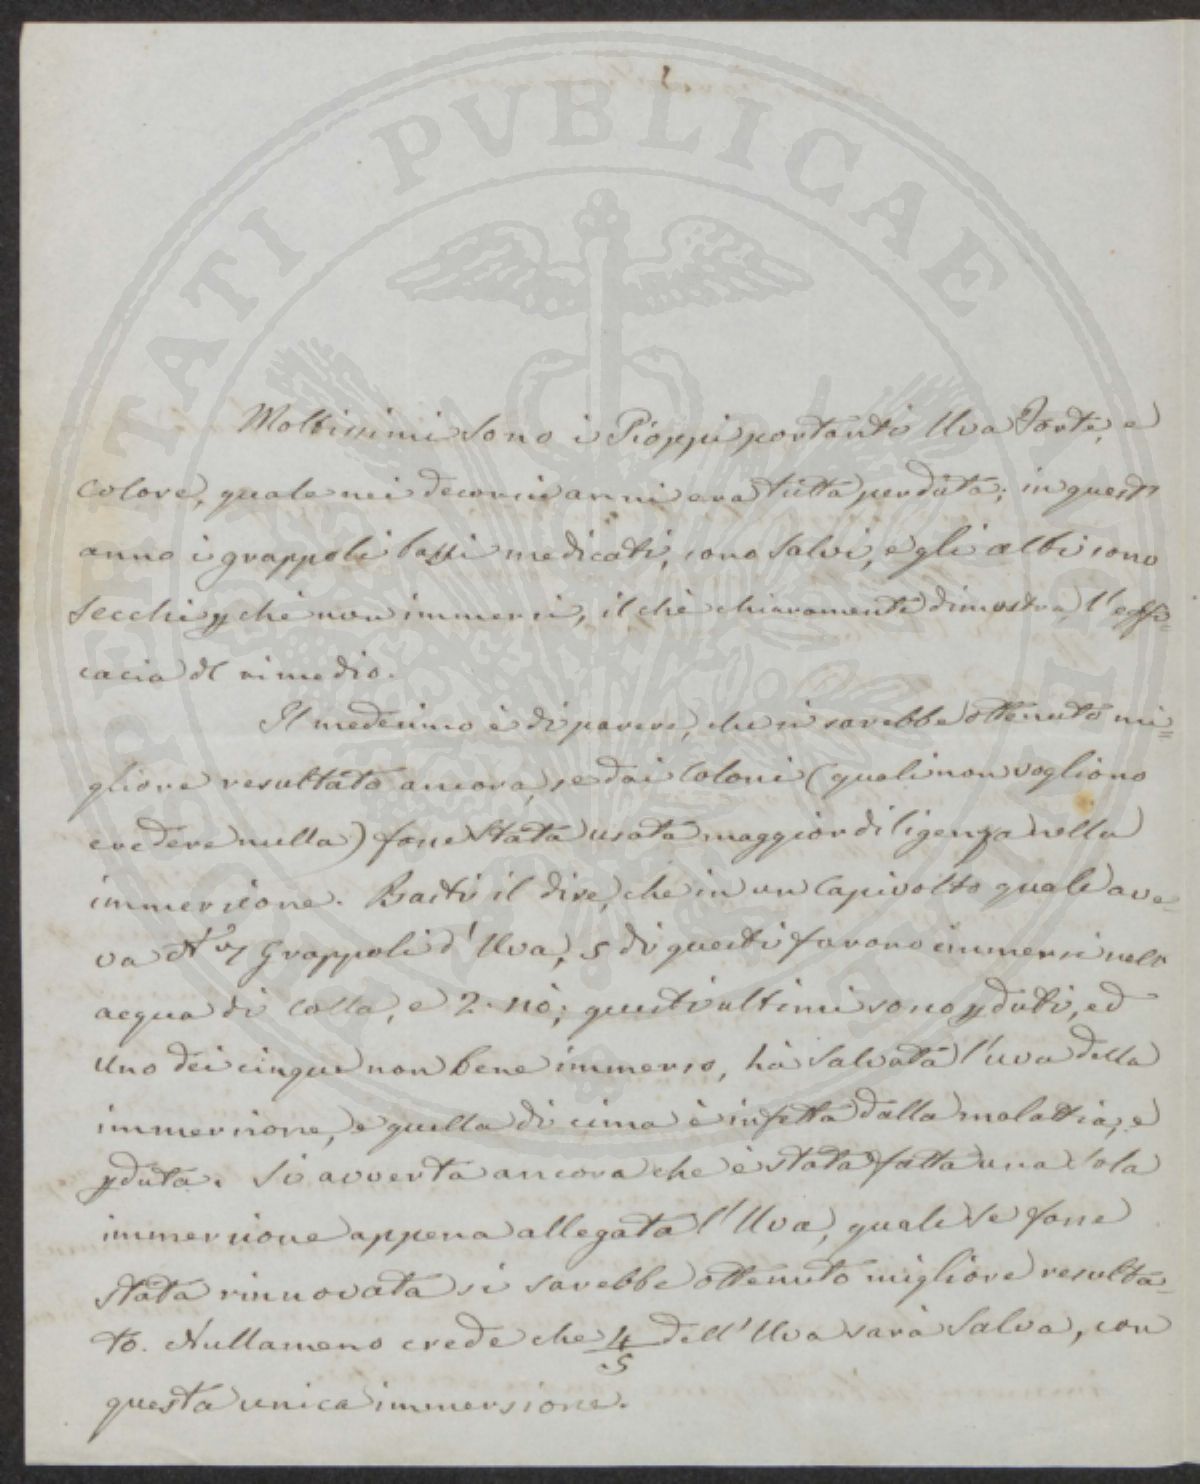 PROSPERITATI PVBLICAE
Moltissimi sono i Pioppi portanti Uva Forte, e
colore, quale nei decorsi anni era tutta perduta; in quest'
anno i grappoli bassi medicati, sono salvi, e gli altri sono
secchi pchè non immersi, il chè chiaramente dimostra l'effi-
cacia del rimedio.
Il medesimo è di parere, che si sarebbe ottenuto mi=
gliore resultato ancora, se dai Coloni (quali non vogliono
credere nulla) fosse stata usata maggior diligenza nella
immersione. Basti il dire, che in un Capivolto quale ave-
va N° 7 Grappoli d'Uva, 5 di questi furono immersi nell'
acqua di Colla, e 2. nò; questi ultimi sono pduti, ed
uno dei cinque non bene immerso, hà salvata l'uva della
immersione, e quella di cima è infetta dalla malattia, e
pduta. Si avverta ancora che è stata fatta una sola
immersione appena allegata l'Uva, quale se fosse
stata rinnovata si sarebbe ottenuto migliore resulta-
to. Nullameno crede che 4/5 dell'Uva sarà salva, con
questa unica immersione.